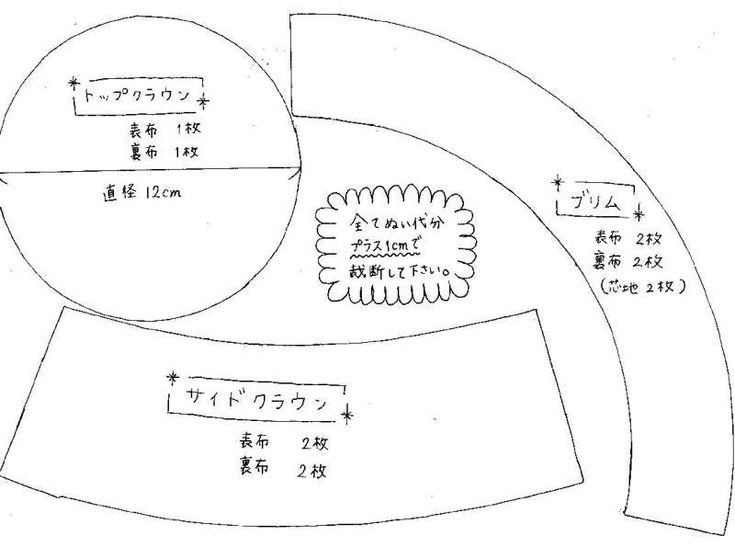 トップクラウン
表布 1枚
裏布 1枚
直径12cm
全てぬい代分
プラス1cmで
裁断して下さい。
ブリム
表布 2枚
裏布 2枚
(芯地 2枚)
サイドクラウン
表布 2枚
裏布 2枚